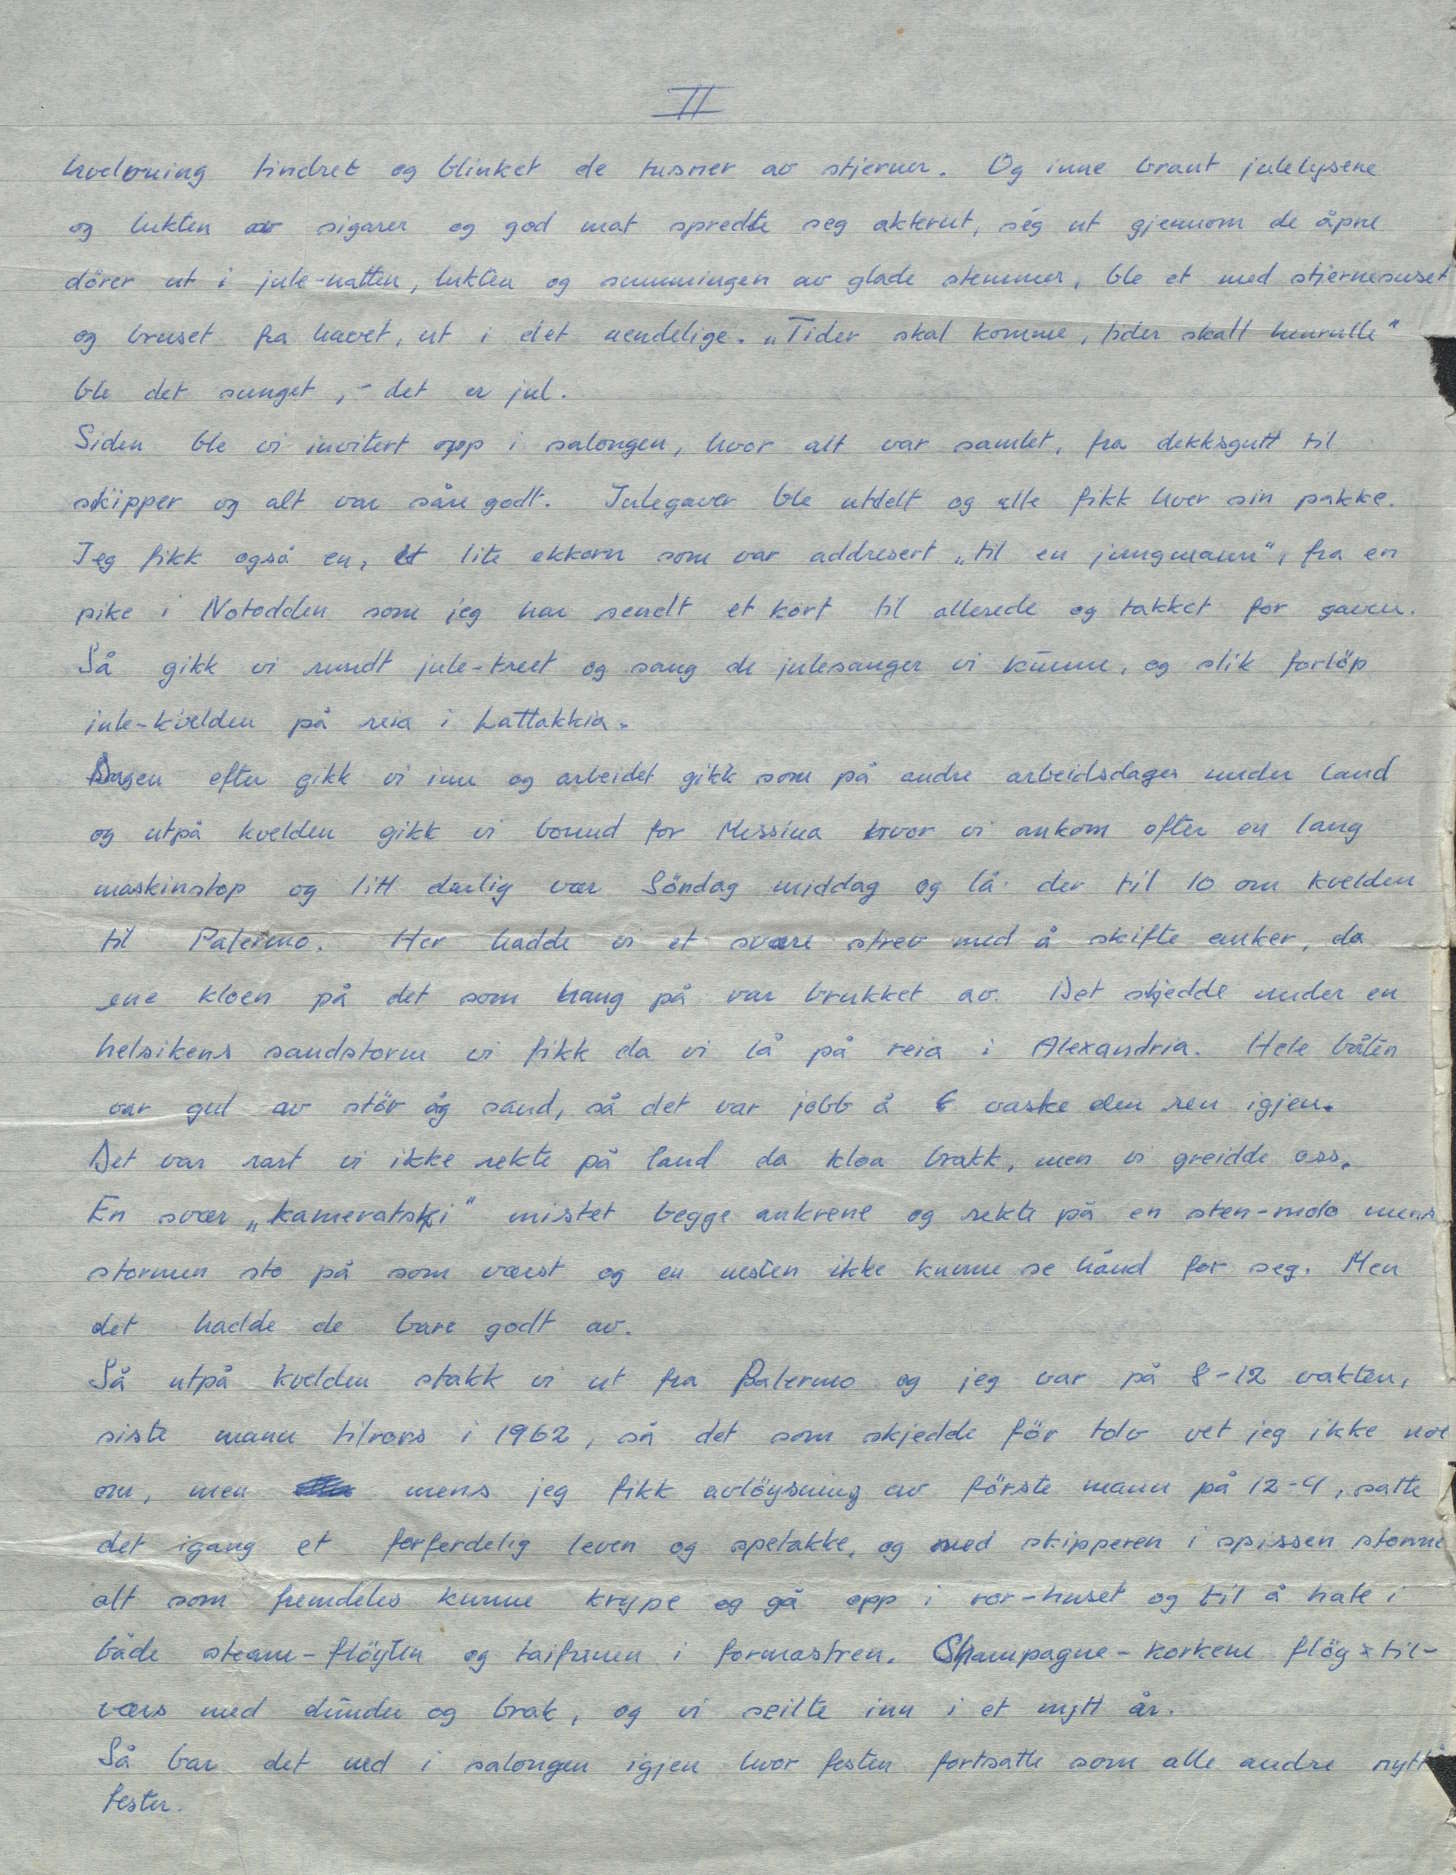 II
hvelvning tindret og blinket de tusner av stjerner. Og inne brant julelysene
og lukten av sigarer og god mat spredte seg akterut, ség ut gjennom de åpne
dörer ut i jule-natten, lukten og summingen av glade stemmer, ble et med stjernesuset
og bruset fra havet, ut i det uendelige. „Tider skal komme, tider skall henrulle"
ble det sunget, - det er jul.
Siden ble vi invitert opp i salongen, hvor alt var samlet, fra dekksgutt til
skipper og alt var såre godt. Julegaver ble utdelt og alle fikk hver sin pakke.
Jeg fikk også en, et lite ekkorn som var addresert „til en jungmann", fra en
pike i Notodden som jeg har sendt et kort til allerede og takket for gaven.
Så gikk vi rundt jule-treet og sang de julesanger vi kunne, og slik forlöp
jule-kvelden på reia i Lattakkia.
Dagen efter gikk vi inn og arbeidet gikk som på andre arbeidsdager under land
og utpå kvelden gikk vi bound for Messina hvor vi ankom efter en lang
maskinstop og litt darlig vær Söndag middag og lå der til 10 om kvelden
til Palermo. Her hadde vi et svære strev med å skifte anker, da
ene kloen på det som hang på var brukket av. Det skjedde under en
helsikens sandstorm vi fikk da vi lå på reia i Alexandria. Hele båten
var gul av stöv og sand, så det var jobb å vaske den ren igjen.
Det var rart vi ikke rekte på land da kloa brakk, men vi greidde oss.
En svær „kameratski" mistet begge ankrene og rekte på en sten-molo mens
stormen sto på som værst og en nesten ikke kunne se hånd for seg. Men
det hadde de bare godt av.
Så utpå kvelden stakk vi ut fra Palermo og jeg var på 8-12 vakten,
siste mann tilrors i 1962, så det som skjedde för tolv vet jeg ikke noe
om, men mens jeg fikk avlöysning av förste mann på 12-4, satte
det igang et forferdelig leven og spetakke, og med skipperen i spissen stormet
alt som fremdeles kunne krype og gå opp i ror-huset og til å hale i
både steam-flöyten og taifunen i formastren. Shampagne-korkene flög til-
værs med dunder og brak, og vi seilte inn i et nytt år.
Så bar det ned i salongen igjen hvor festen fortsatte som alle andre nytt
fester.